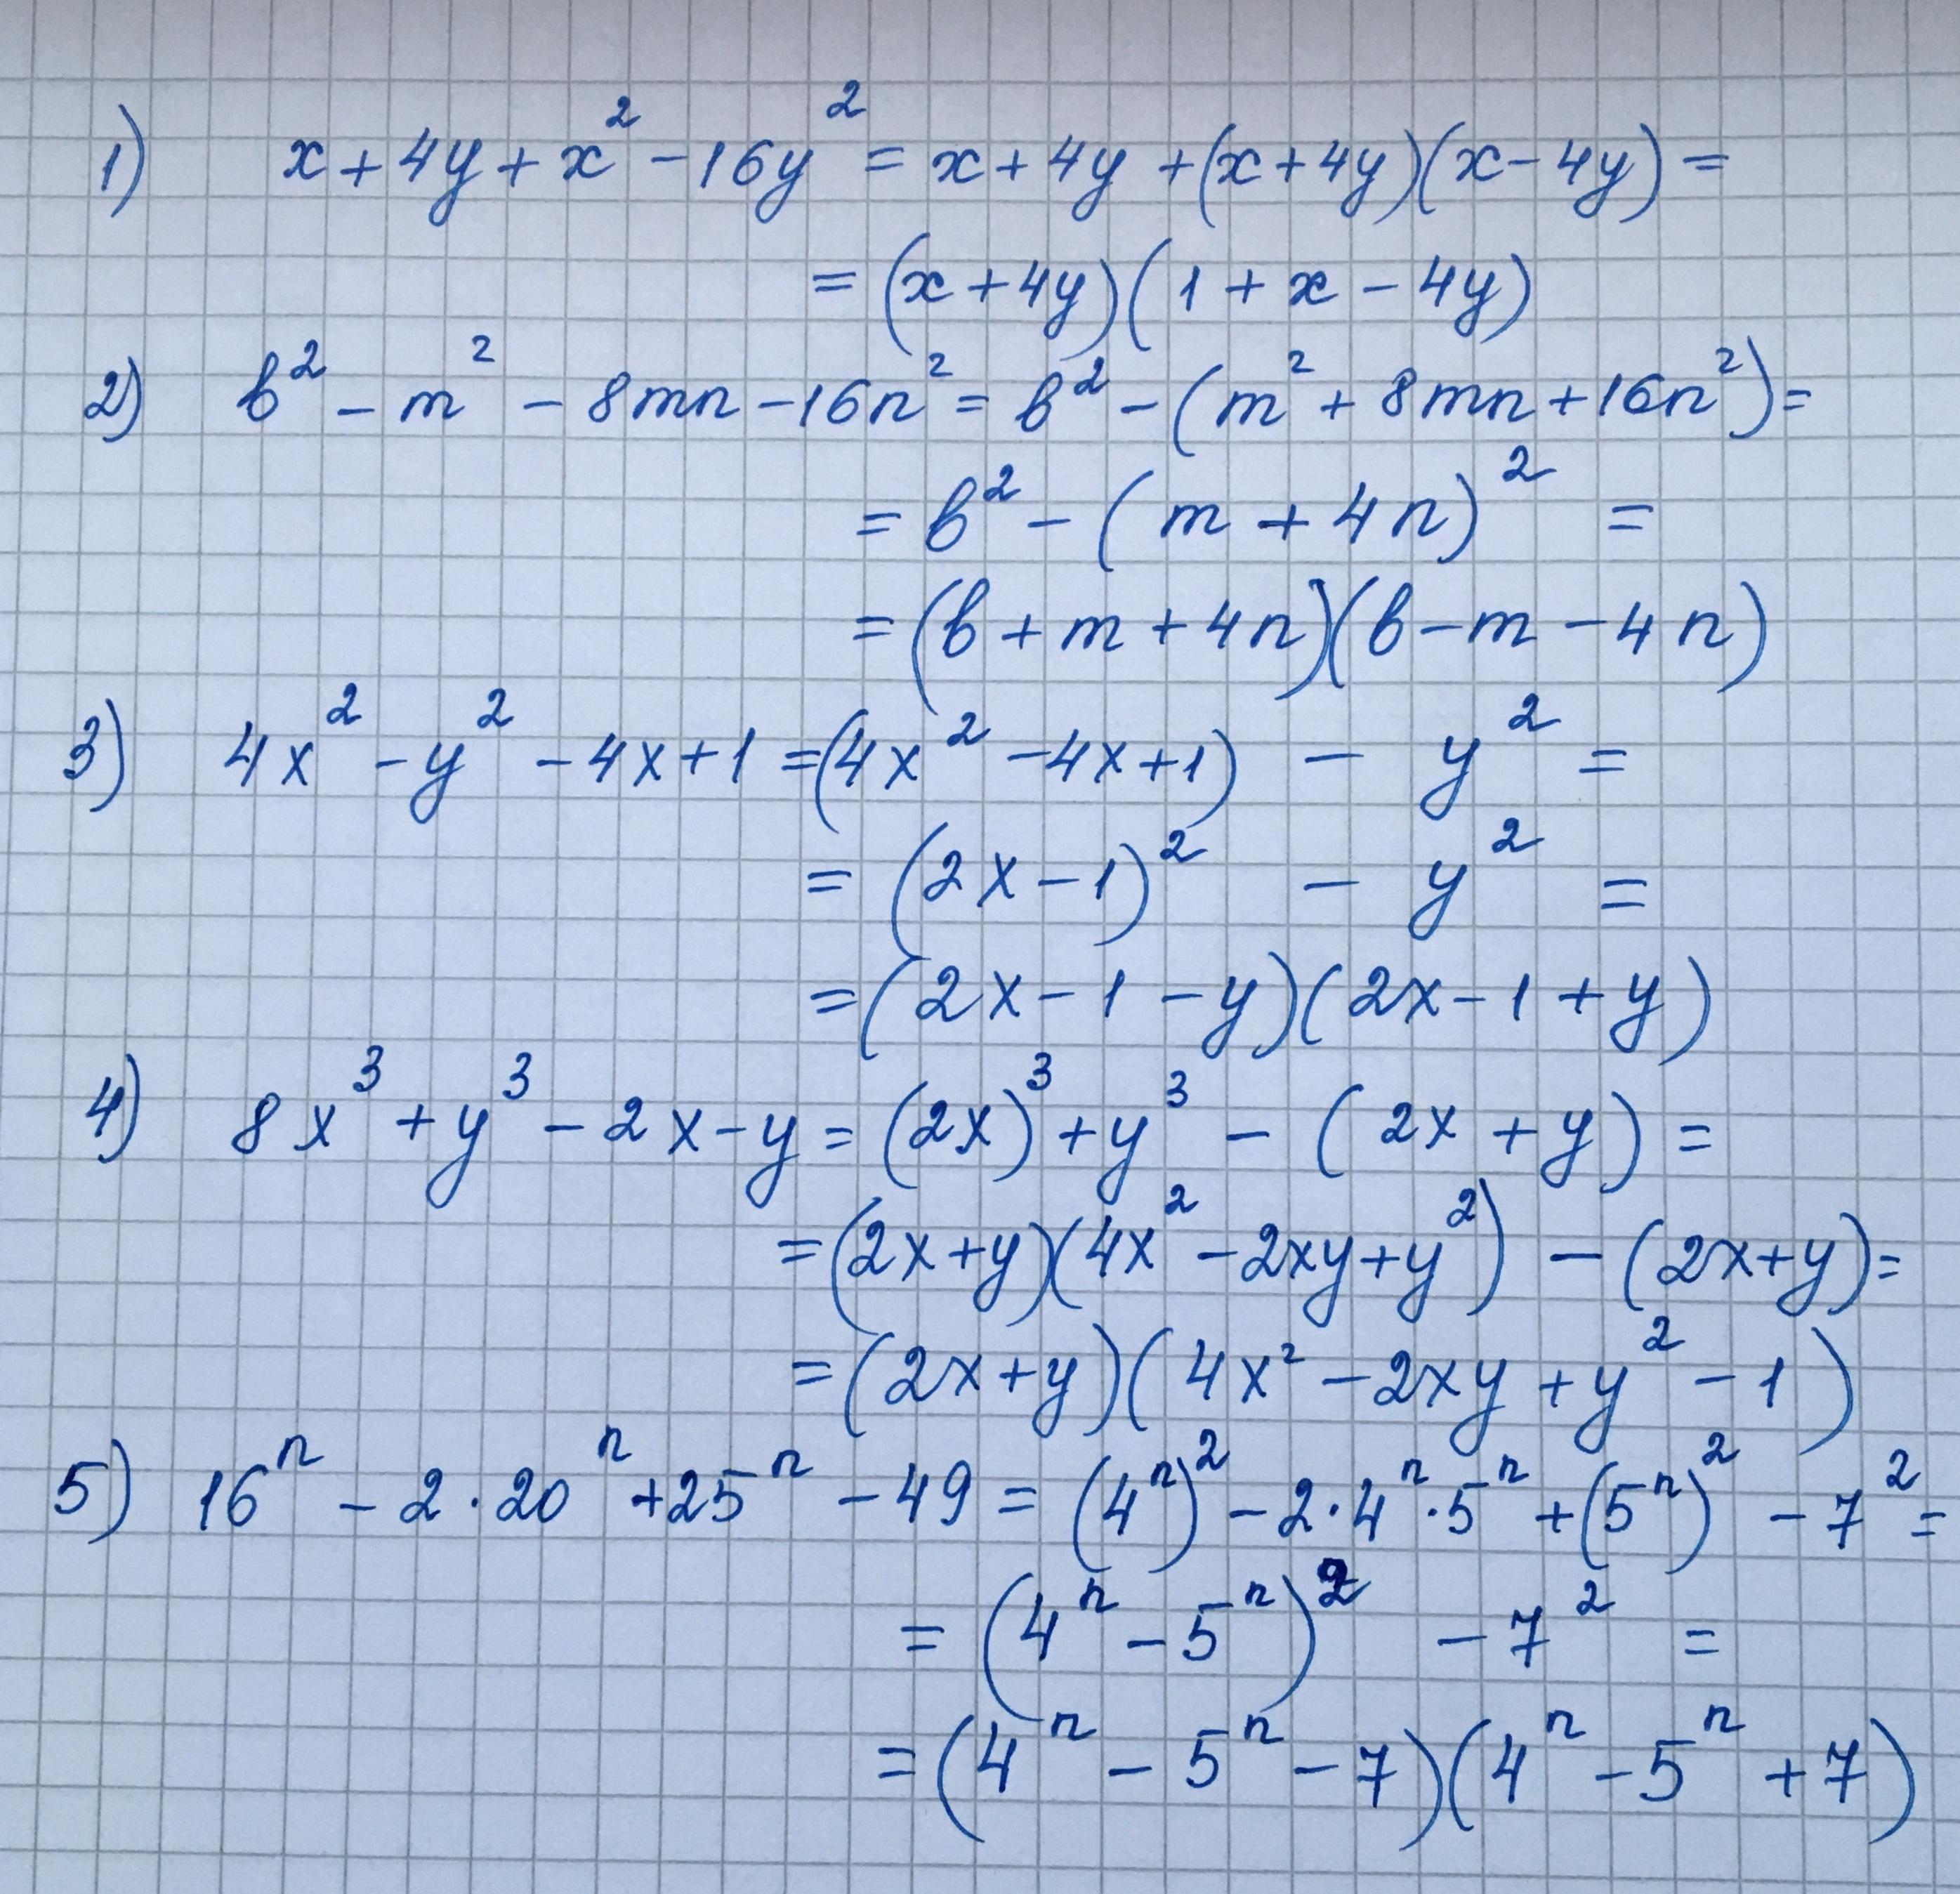 1) x + 4y + x² - 16y² = x + 4y + (x + 4y)(x - 4y) =
= (x + 4y)(1 + x - 4y)
2) b² - m² - 8mn - 16n² = b² - (m² + 8mn + 16n²) =
= b² - (m + 4n)² =
= (b + m + 4n)(b - m - 4n)
3) 4x² - y² - 4x + 1 = (4x² - 4x + 1) - y² =
= (2x - 1)² - y² =
= (2x - 1 - y)(2x - 1 + y)
4) 8x³ + y³ - 2x - y = (2x)³ + y³ - (2x + y) =
= (2x + y)(4x² - 2xy + y²) - (2x + y) =
= (2x + y)(4x² - 2xy + y² - 1)
5) 16ⁿ - 2 · 20ⁿ + 25ⁿ - 49 = (4ⁿ)² - 2 · 4ⁿ · 5ⁿ + (5ⁿ)² - 7² =
= (4ⁿ - 5ⁿ)² - 7² =
= (4ⁿ - 5ⁿ - 7)(4ⁿ - 5ⁿ + 7)